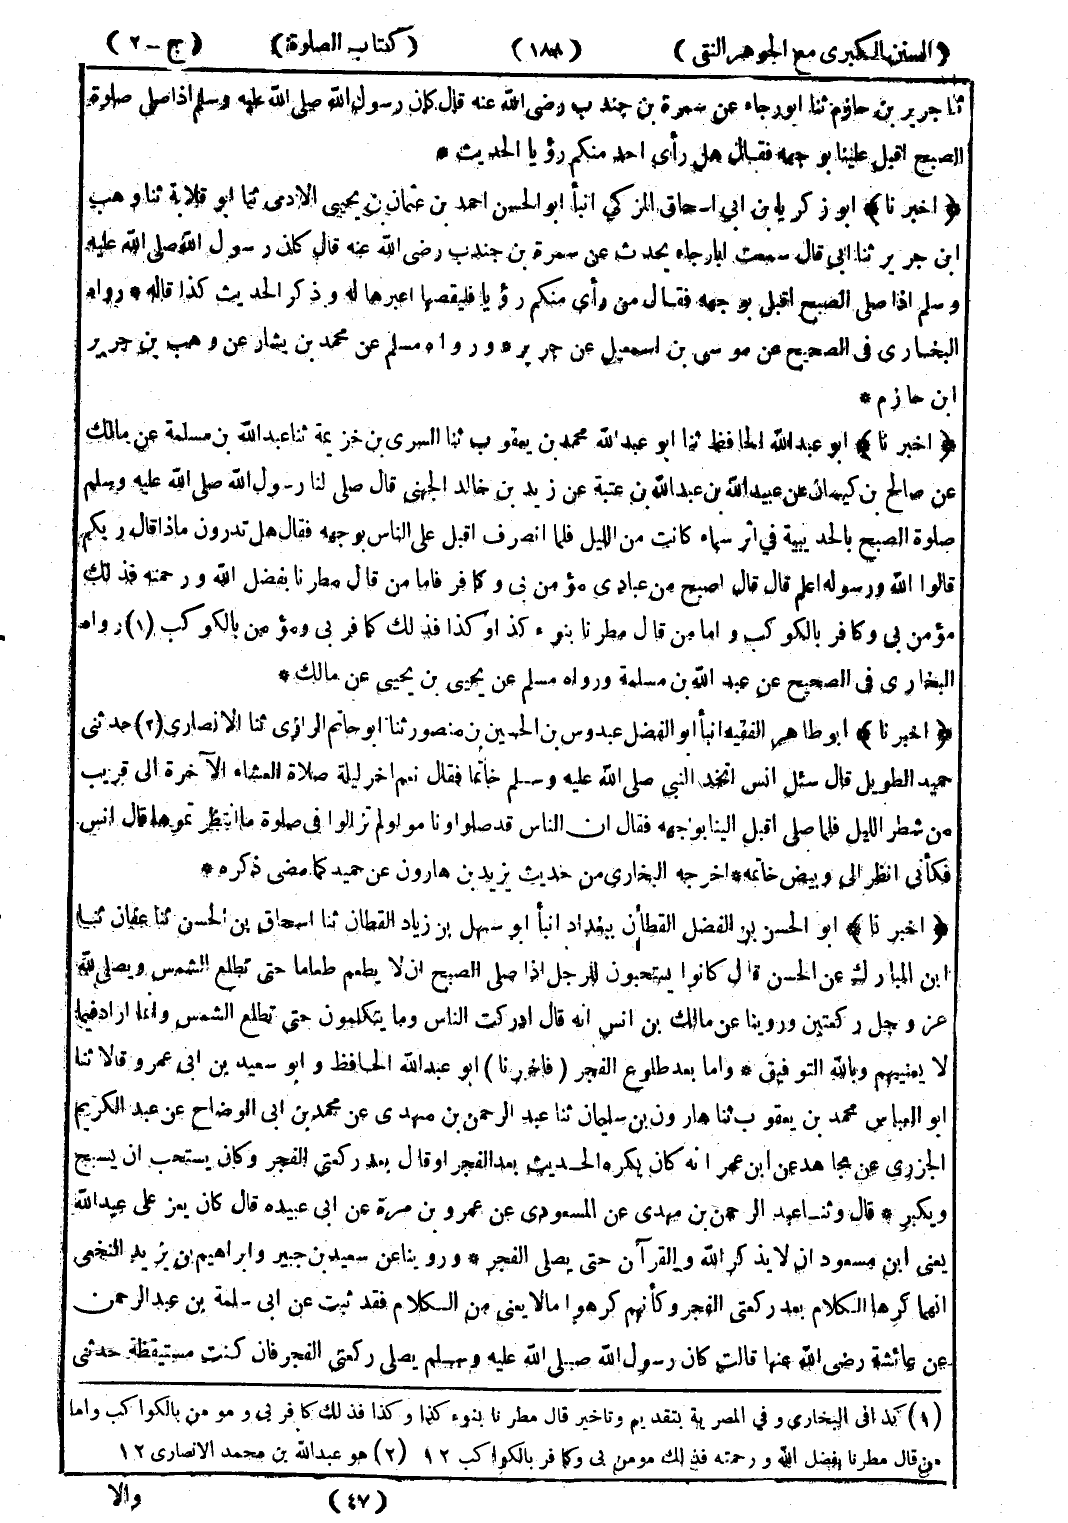 (السنن الكبرى مع الجوهر النقى) (١٨٨) (كتاب الصلوة) (ج - ٢)
ثنا جرير بن حازم ثنا ابو رجاء عن سمرة بن جندب رضى الله عنه قال كان رسول الله صلى الله عليه وسلم اذا صلى صلوة
الصبح اقبل علينا بوجهه فقال هل رأى احد منكم رؤيا الحديث *
﴿ اخبرنا ﴾ ابو زكريا بن ابي اسحاق المزكي انبأ ابو الحسن احمد بن عثمان بن يحيى الادمى ثنا ابو قلابة ثنا وهب
ابن جرير ثنا ابى قال سمعت ابا رجاء يحدث عن سمرة بن جندب رضى الله عنه قال كان رسول الله صلى الله عليه
وسلم اذا صلى الصبح اقبل بوجهه فقال من رأى منكم رؤيا فليقصها اعبرها له وذكر الحديث كذا قاله * رواه
البخارى فى الصحيح عن موسى بن اسمعيل عن جرير * ورواه مسلم عن محمد بن بشار عن وهب بن جرير
ابن حازم *
﴿ اخبرنا ﴾ ابو عبد الله الحافظ ثنا ابو عبد الله محمد بن يعقوب ثنا السرى بن خزيمة ثنا عبد الله بن مسلمة عن مالك
عن صالح بن كيسان عن عبيد الله بن عبد الله بن عتبة عن زيد بن خالد الجهنى قال صلى لنا رسول الله صلى الله عليه وسلم
صلوة الصبح بالحديبية في اثر سماء كانت من الليل فلما انصرف اقبل على الناس بوجهه فقال هل تدرون ماذا قال ربكم
قالوا الله ورسوله اعلم قال قال اصبح من عبادى مؤمن بى وكافر فاما من قال مطرنا بفضل الله ورحمته فذلك
مؤمن بى وكافر بالكوكب واما من قال مطرنا بنوء كذا وكذا فذلك كافر بى ومؤمن بالكوكب (١) رواه
البخارى فى الصحيح عن عبد الله بن مسلمة ورواه مسلم عن يحيى بن يحيى عن مالك *
﴿ اخبرنا ﴾ ابو طاهر الفقيه انبأ ابو الفضل عبدوس بن الحسين بن منصور ثنا ابو حاتم الرازى ثنا الانصارى (٢) حدثنى
حميد الطويل قال سئل انس اتخذ النبي صلى الله عليه وسلم خاتما فقال نعم اخر ليلة صلاة العشاء الآخرة الى قريب
من شطر الليل فلما صلى اقبل الينا بوجهه فقال ان الناس قد صلوا وناموا ولم تزالوا فى صلوة ما انتظرتموها قال انس
فكأنى انظر الى وبيض خاتمه * اخرجه البخارى من حديث يزيد بن هارون عن حميد كما مضى ذكره *
﴿ اخبرنا ﴾ ابو الحسن بن الفضل القطان ببغداد انبأ ابو سهل بن زياد القطان ثنا اسحاق بن الحسن ثنا عفان ثنا
ابن المبارك عن الحسن قال كانوا يستحبون للرجل اذا صلى الصبح ان لا يطعم طعاما حتى تطلع الشمس ويصلى لله
عز وجل ركعتين وروينا عن مالك بن انس انه قال ادركت الناس وما يتكلمون حتى تطلع الشمس وانما اراد فيما
لا يعنيهم وبالله التوفيق * واما بعد طلوع الفجر (فاخبرنا) ابو عبد الله الحافظ وابو سعيد بن ابى عمرو قالا ثنا
ابو العباس محمد بن يعقوب ثنا هارون بن سليمان ثنا عبد الرحمن بن مهدى عن محمد بن ابى الوضاح عن عبد الكريم
الجزرى عن مجاهد عن ابن عمر انه كان يكره الحديث بعد الفجر او قال بعد ركعتى الفجر وكان يستحب ان يسبح
ويكبر * قال وثنا عبد الرحمن بن مهدى عن المسعودى عن عمرو بن مرة عن ابى عبيده قال كان يعز على عبد الله
يعنى ابن مسعود ان لا يذكر الله والقرآن حتى يصلى الفجر * وروينا عن سعيد بن جبير وابراهيم بن يزيد النخعى
انهما كرها الكلام بعد ركعتى الفجر وكأنهم كرهوا مالا يعنى من الكلام فقد ثبت عن ابى سلمة بن عبد الرحمن
عن عائشة رضى الله عنها قالت كان رسول الله صلى الله عليه وسلم يصلى ركعتى الفجر فان كنت مستيقظة حدثنى
(١) كذا فى البخارى و في المصرية بتقديم وتاخير قال مطرنا بنوء كذا وكذا فذلك كافر بى ومومن بالكواكب واما
من قال مطرنا بفضل الله ورحمته فذلك مومن بى وكافر بالكواكب ١٢ (٢) هو عبد الله بن محمد الانصارى ١٢
(٤٧) والا